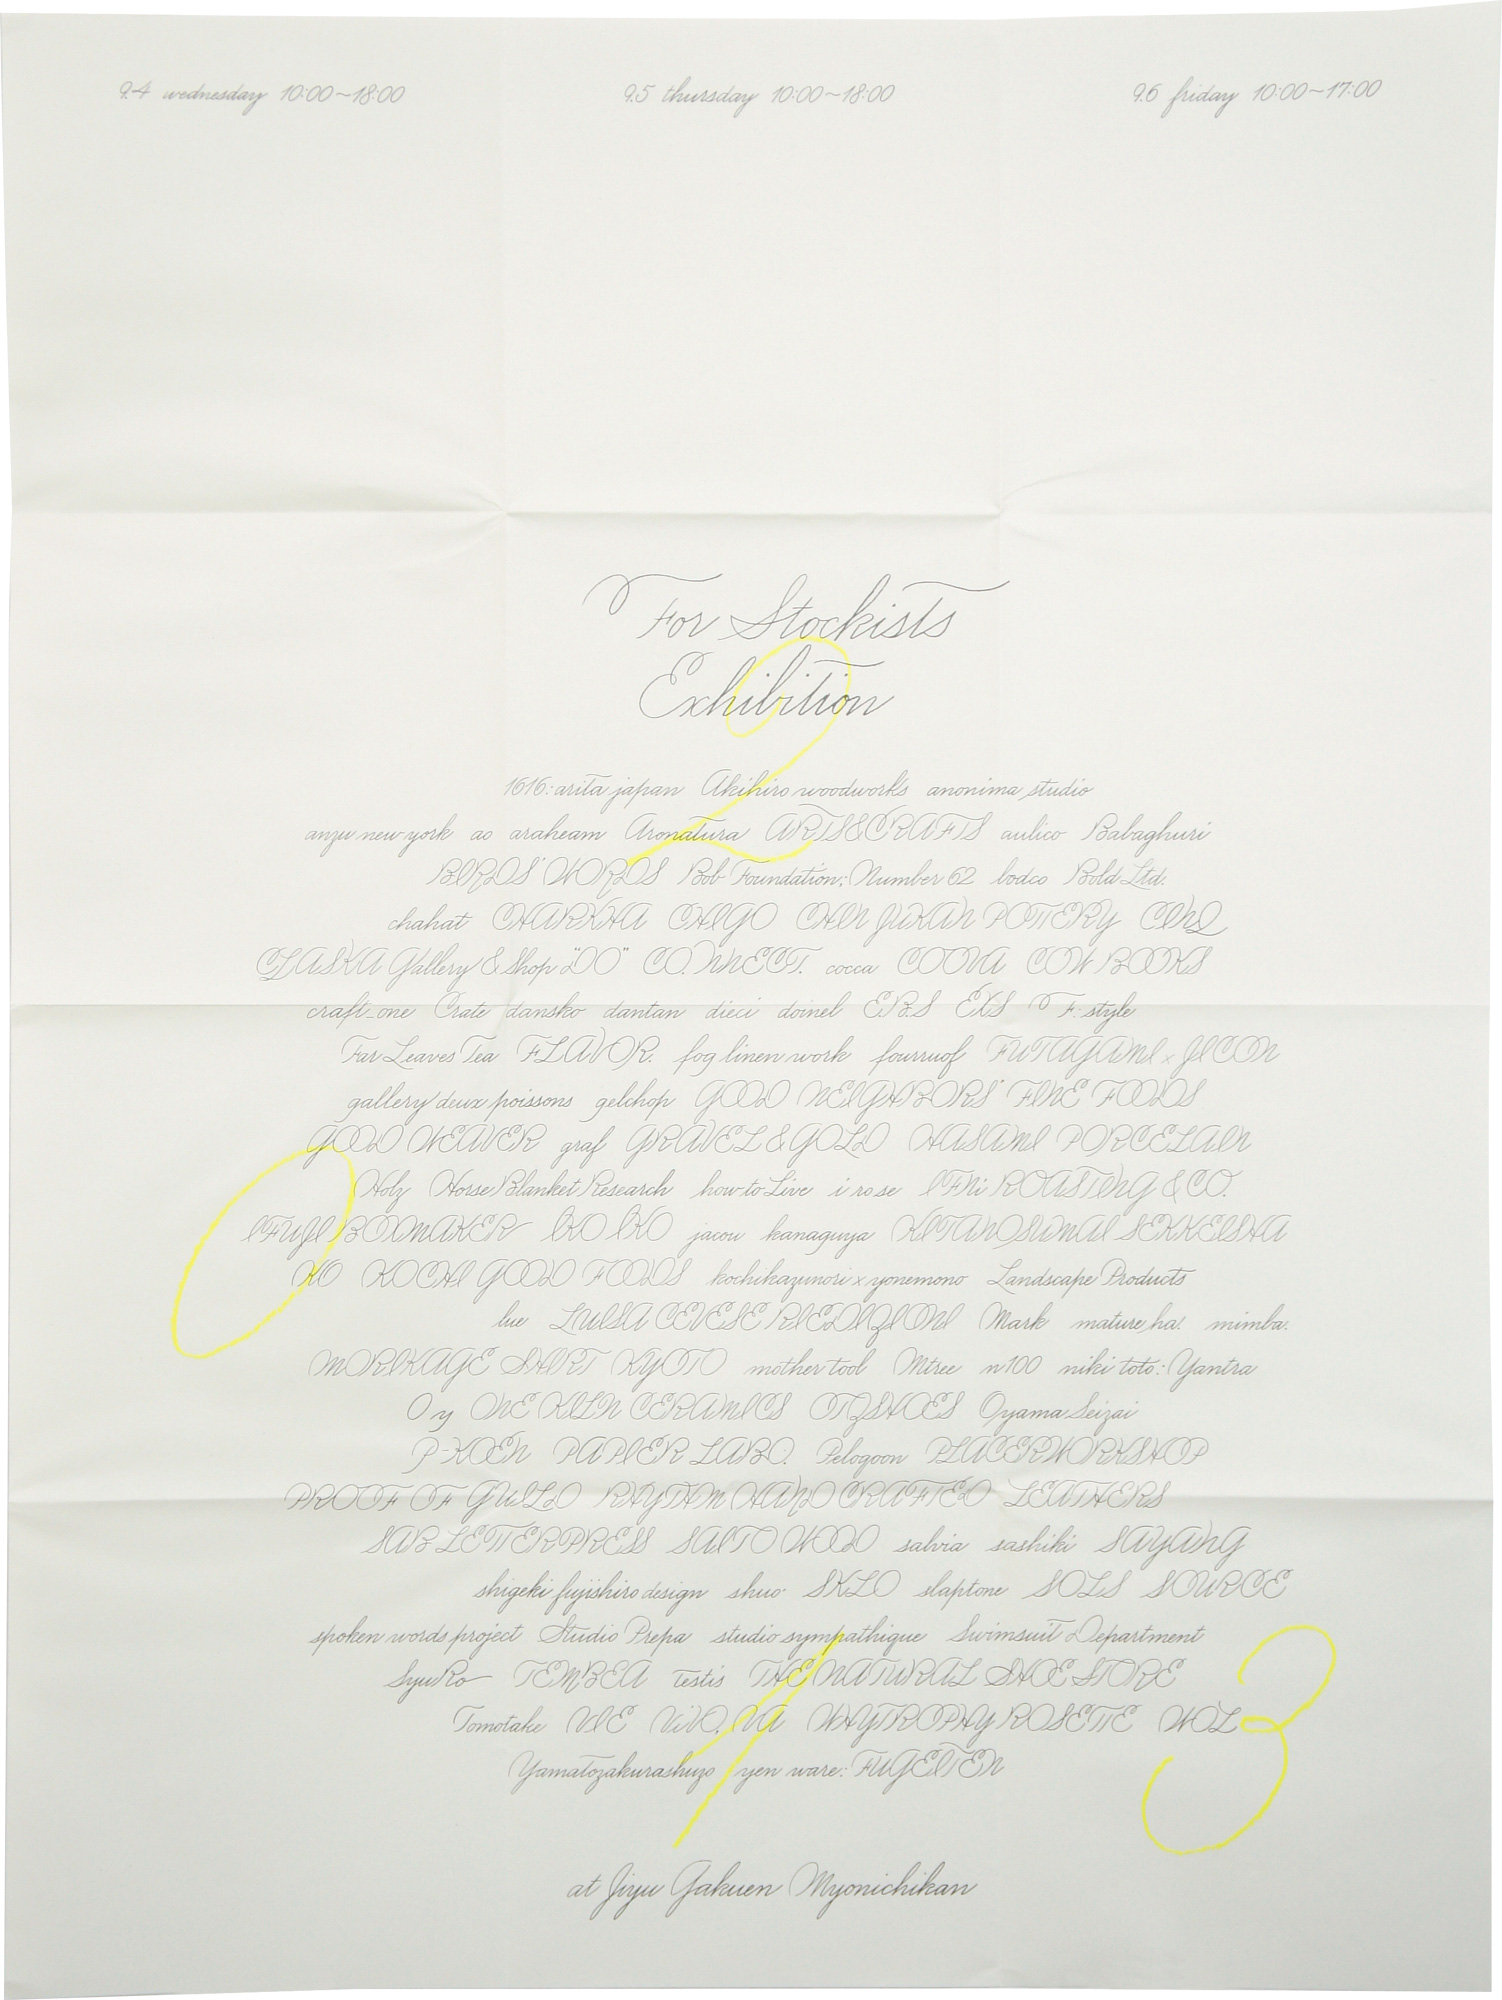 9.4 wednesday 10:00~18:00
9.5 thursday 10:00~18:00
9.6 friday 10:00~17:00
For Stockists
Exhibition
1616:arita japan Akihiro woodworks anonima studio
anzu new york ao araheam Aronatura ARTS&CRAFTS aulico Babaghuri
BIRDS' WORDS Bob Foundation:Number 62 bodco Bold Ltd.
chahat CHARKHA CHIGO CHIN JUKAN POTTERY CINQ
CLASKA Gallery & Shop "DO" CO.NNECT. cocca COOVA COW BOOKS
craft_one Crate dansko dantan dieci doinel EBS EXS F:style
Far Leaves Tea FLAVOR. fog linen work fourruof FUTAGAMI × JICON
gallery deux poissons gelchop GOOD NEIGHBORS' FINE FOODS
GOOD WEAVER graf GRAVEL & GOLD HASAMI PORCELAIN
Holz Horse Blanket Research how to Live i ro se IFNi ROASTING & CO.
IFUJI BOXMAKER IKO IKO jacou kanaguya KITANOSUMAI SEKKEISHA
KO KOCHI GOOD FOODS kochikazunori × yonemono Landscape Products
lue LUISA CEVESE RIEDIZIONI Mark mature ha. mimba.
MORIKAGE SHIRT KYOTO mother tool Mtree n100 niki toto: Yantra
O y ONE KILN CERAMICS OTZSHOES Oyama Seizai
P-KOEN PAPIER LABO. Pelogoon PLACERWORKSHOP
PROOF OF GUILD RHYTHM HAND CRAFTED LEATHERS
SAB LETTERPRESS SAITO WOOD salvia sashiki SAYANG
shigeki fujishiro design shuo' SKLO slaptone SOLS SOURCE
spoken words project Studio Prepa studio sympathique Swimsuit Department
SyuRo TEMBEA Testis THE NATURAL SHOE STORE
Tomotake VIE ViVO, VA WHYTROPHY ROSETTE WOL
Yamatozakurashuzo yen ware: FUGEITEN
at Jiyu Gakuen Myonichikan
2
0
1
3